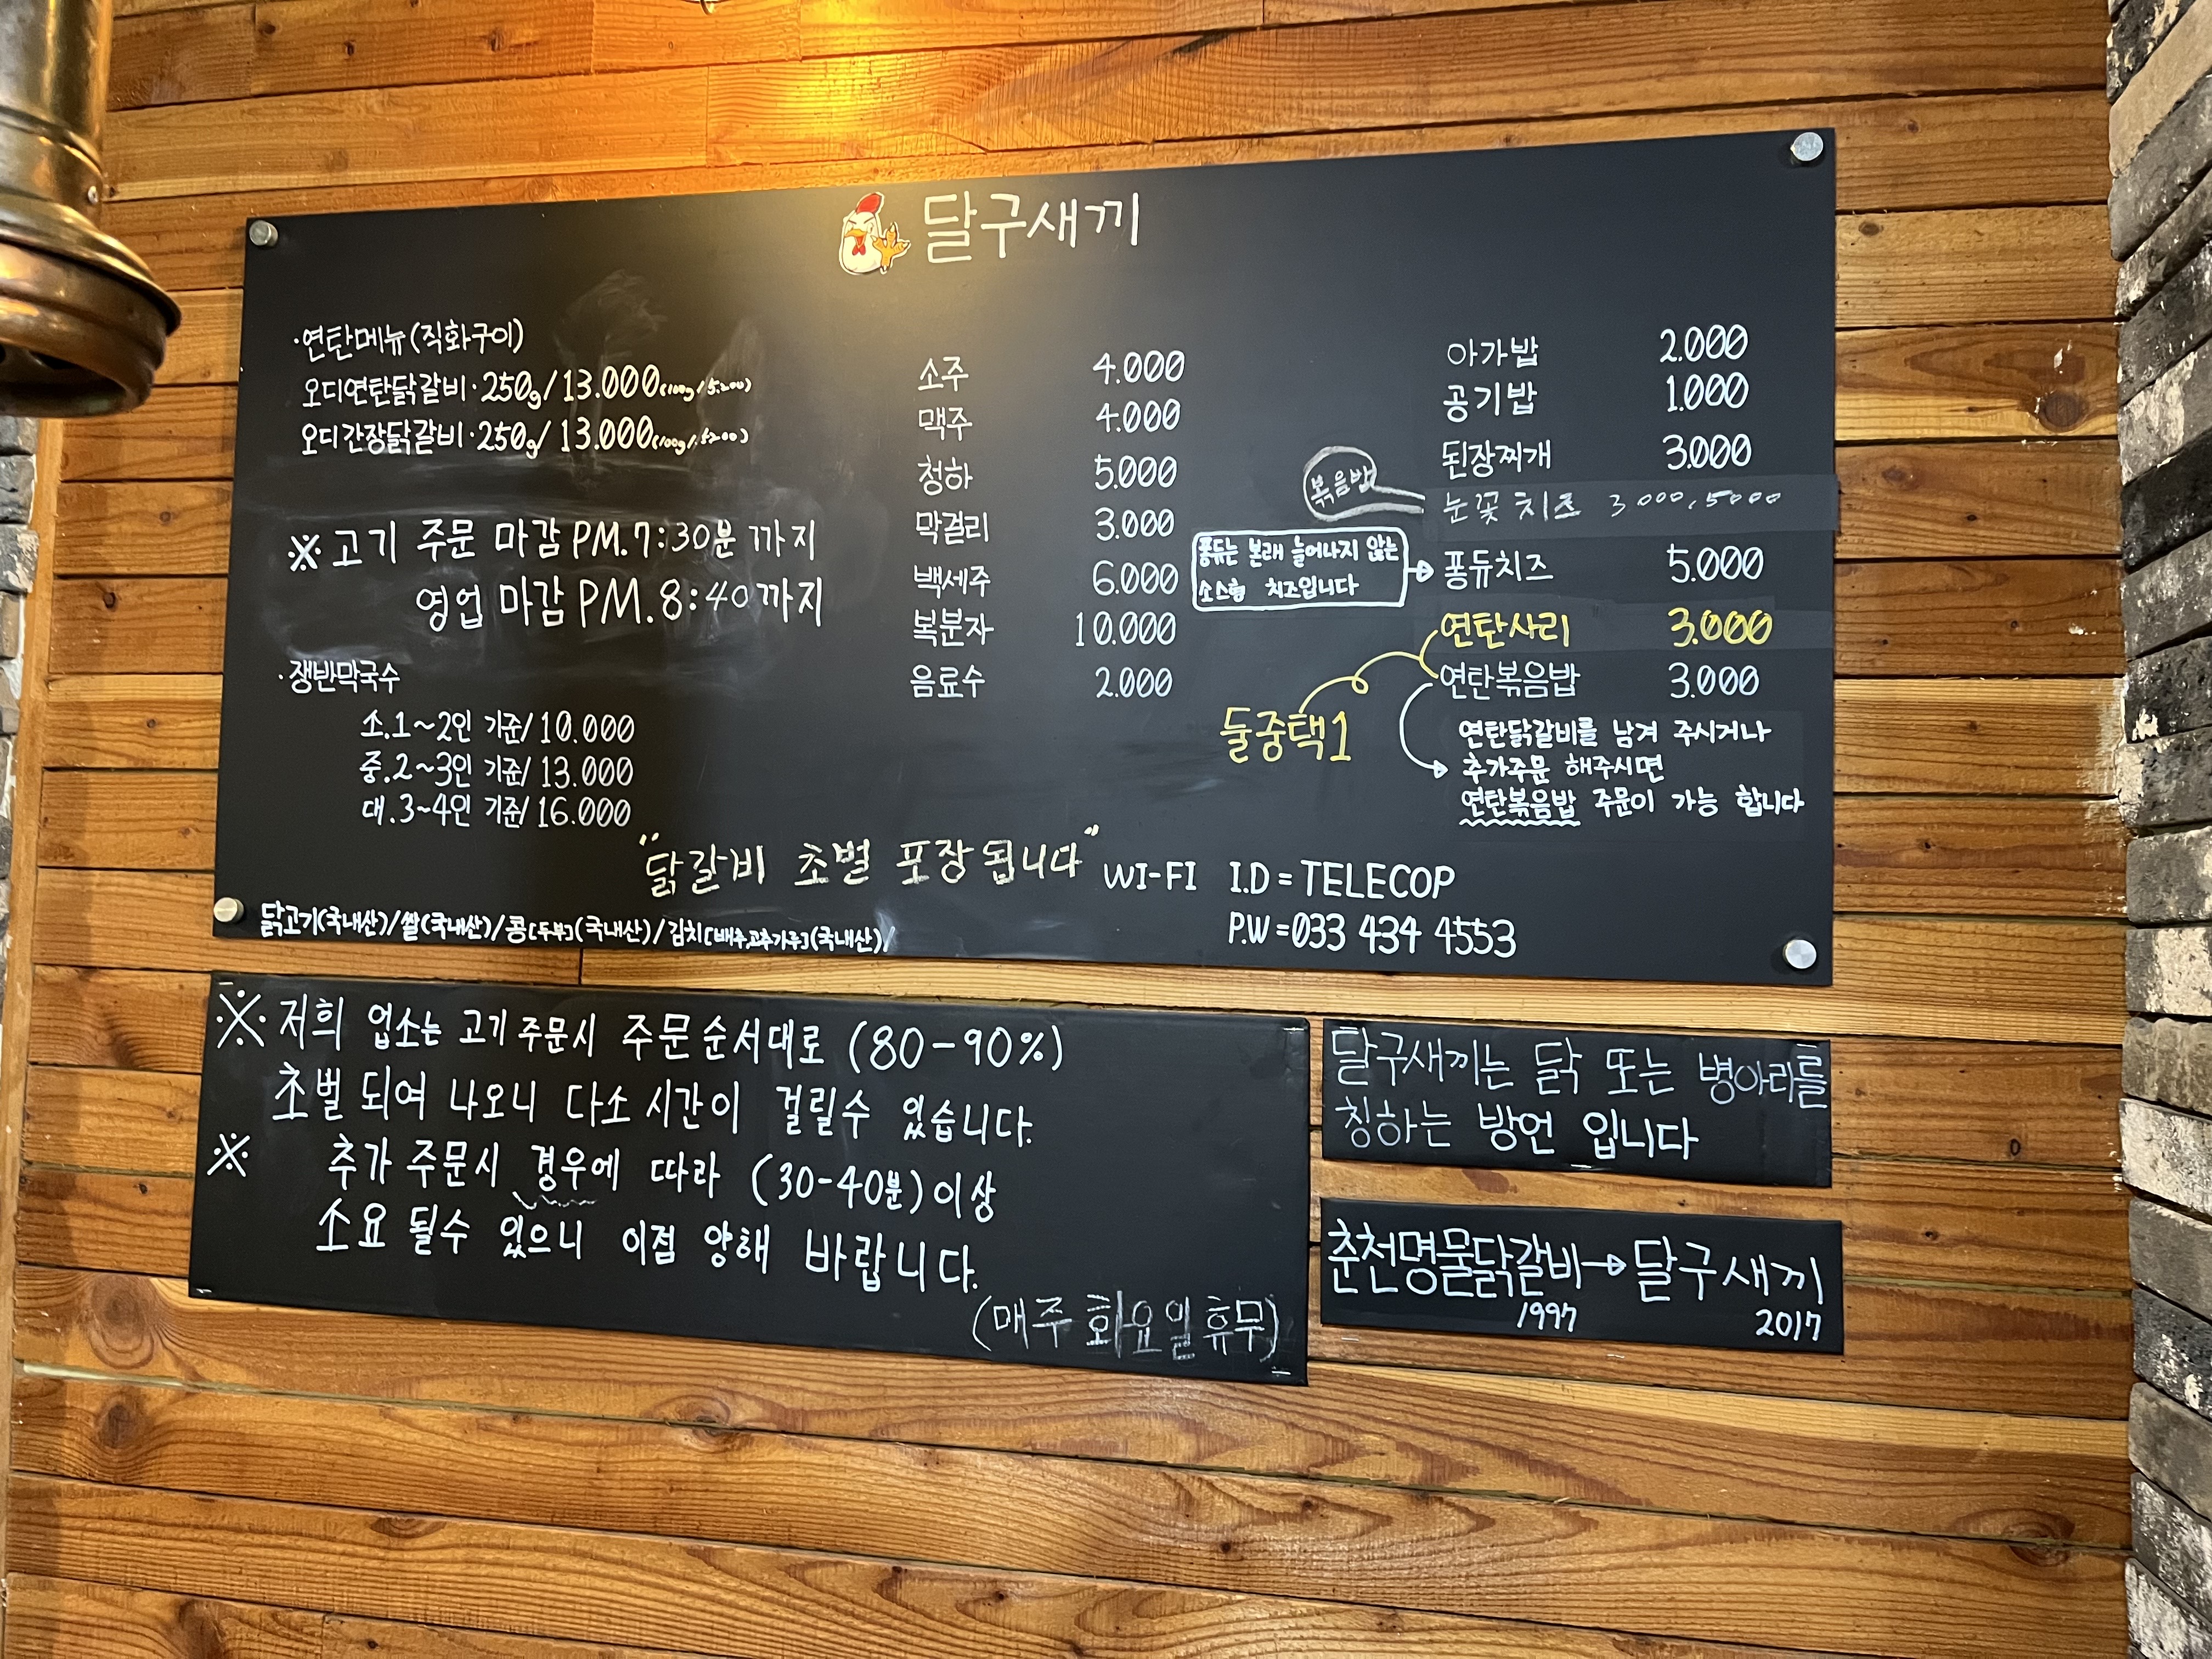 달구새끼
·연탄메뉴(직화구이)
오디연탄닭갈비·250g/13.000(100g/5.200)
오디간장닭갈비·250g/13.000(100g/5200)
※고기 주문 마감 PM.7:30분까지
영업 마감 PM.8:40까지
·쟁반막국수
소.1~2인 기준/10.000
중.2~3인 기준/13.000
대.3~4인 기준/16.000
소주 4.000
맥주 4.000
청하 5.000
막걸리 3.000
백세주 6.000
복분자 10.000
음료수 2.000
아가밥 2.000
공기밥 1.000
된장찌개 3.000
볶음밥
눈꽃치즈 3000,5000
퐁듀는 본래 늘어나지 않는
소스형 치즈입니다
퐁듀치즈 5.000
연탄사리 3.000
연탄볶음밥 3.000
둘중택1
연탄닭갈비를 남겨 주시거나
추가주문 해주시면
연탄볶음밥 주문이 가능 합니다
"닭갈비 초벌 포장됩니다"
WI-FI I.D=TELECOP
P.W=033 434 4553
닭고기(국내산)/쌀(국내산)/콩[두부](국내산)/김치[배추,고추가루](국내산)/
※저희 업소는 고기주문시 주문순서대로 (80-90%)
초벌 되여 나오니 다소 시간이 걸릴수 있습니다.
※ 추가 주문시 경우에 따라 (30-40분)이상
소요 될수 있으니 이점 양해 바랍니다.
(매주 화요일 휴무)
달구새끼는 닭 또는 병아리를
칭하는 방언 입니다
춘천명물닭갈비→달구새끼
1997 2017